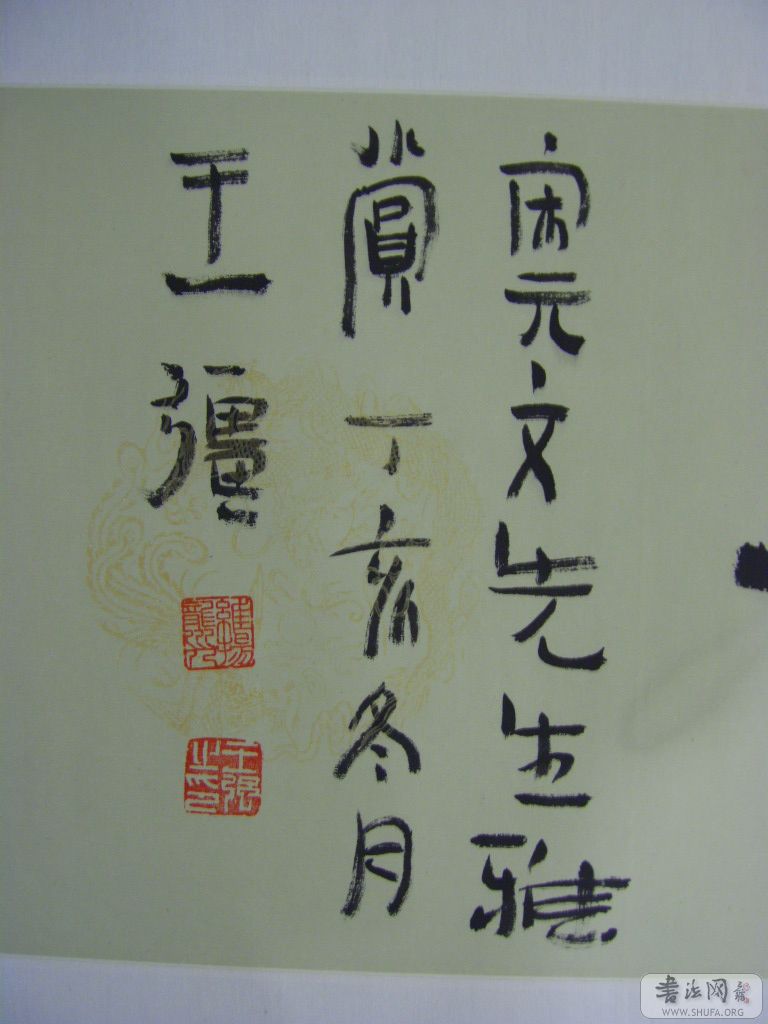 宋元文先生雅
賞丁亥冬月
王彊
王强之印
書法网
WWW.SHUFA.ORG